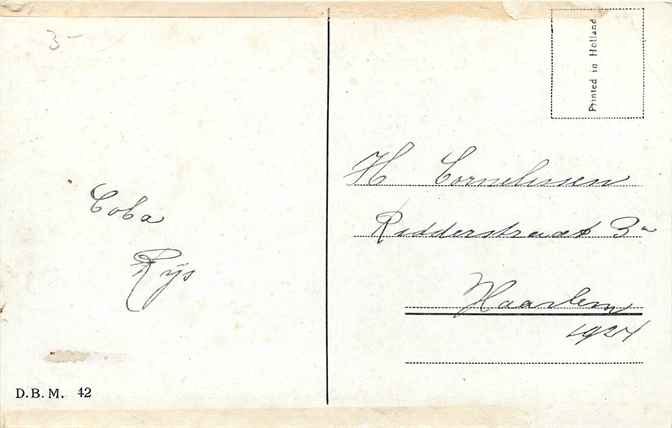 3-
Printed in Holland
H Cornelissen
Ridderstraat 3a
Haarlem
1924
Coba
Rijs
D.B.M. 42